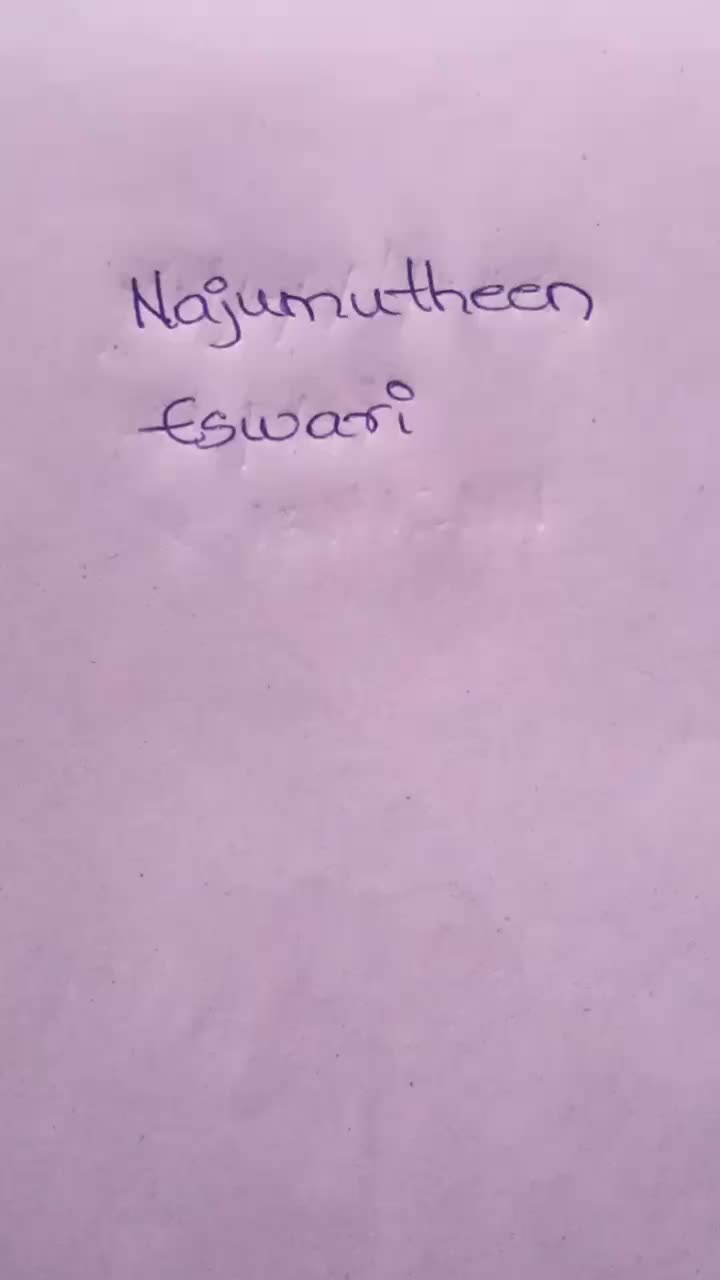 Najumutheen
Eswari